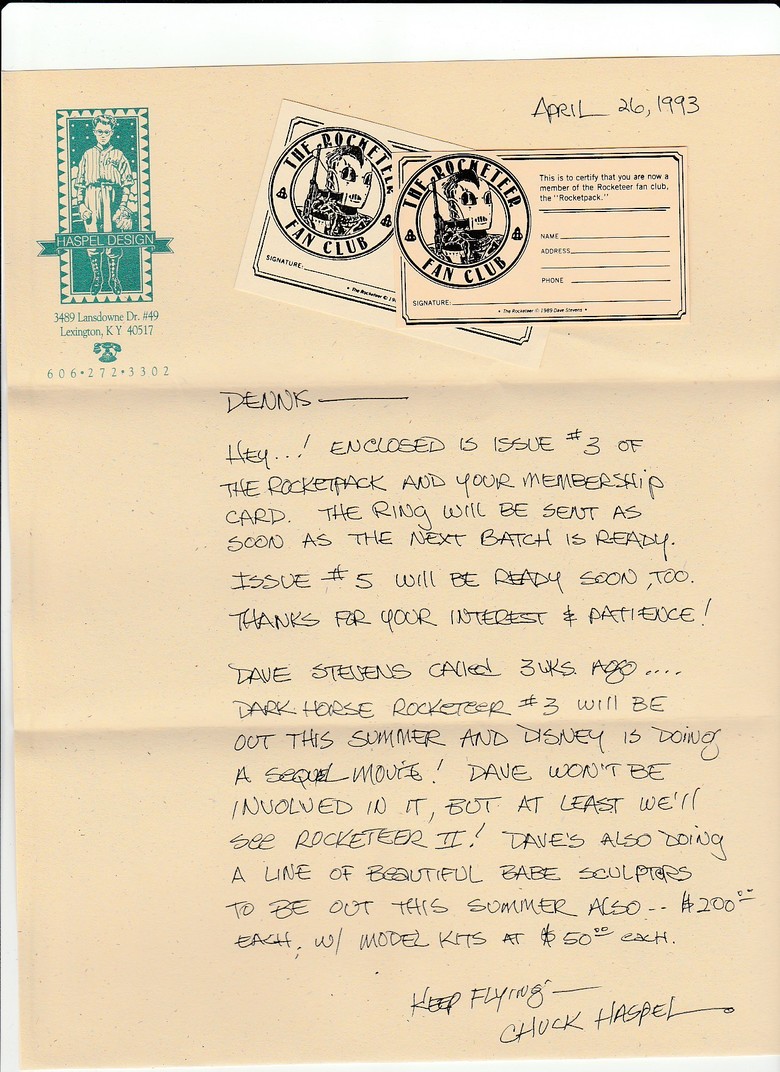 APRIL 26, 1993
HASPEL DESIGN
3489 Lansdowne Dr. #49
Lexington, K Y 40517
606•272•3302
THE ROCKETEER
FAN CLUB
SIGNATURE:
• The Rocketeer © 19
THE ROCKETEER
FAN CLUB
This is to certify that you are now a
member of the Rocketeer fan club,
the "Rocketpack."
NAME
ADDRESS
PHONE
SIGNATURE:
• The Rocketeer © 1989 Dave Stevens •
DENNIS —
HEY...! ENCLOSED IS ISSUE #3 OF
THE ROCKETPACK AND YOUR MEMBERSHIP
CARD. THE RING WILL BE SENT AS
SOON AS THE NEXT BATCH IS READY.
ISSUE #5 WILL BE READY SOON, TOO.
THANKS FOR YOUR INTEREST & PATIENCE!
DAVE STEVENS CALLED 3 WKS. AGO....
DARK HORSE ROCKETEER #3 WILL BE
OUT THIS SUMMER AND DISNEY IS DOING
A SEQUEL MOVIE! DAVE WON'T BE
INVOLVED IN IT, BUT AT LEAST WE'LL
SEE ROCKETEER II! DAVE'S ALSO DOING
A LINE OF BEAUTIFUL BABE SCULPTORS
TO BE OUT THIS SUMMER ALSO-- $200.00
EACH, W/ MODEL KITS AT $50.00 EACH.
KEEP FLYING —
CHUCK HASPEL